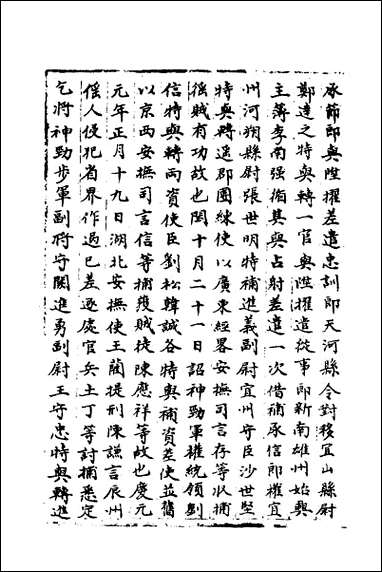 承節郎與陞擢差遣忠訓郎天河縣令對移宜山縣尉
鄭達之特與轉一官與陞擢差遣從事郎新南雄州始興
主簿李南强循其與占射差遣一次借補承信郎權宜
州河朔縣尉張世明特補進義副尉宜州守臣沙世堅
特與轉遥郡團練使以廣東經畧安撫司言存等収捕
徭賊有功故也閏十月二十一日詔神勁軍權統領劉
信特與轉兩資使臣劉松韓誠各特與補資差使並舊
以京西安撫司言信等捕獲賊徒陳應祥等故也慶元
元年正月十九日湖北安撫使王藺提刑陳謙言辰州
徭人侵犯省界作過已差逐處官兵土丁等討捕悉定
乞將神勁步軍副將守闕進勇副尉王守忠特與轉進